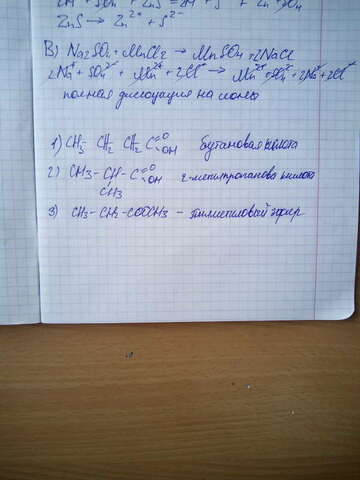 ZnS → Zn²⁺ + S²⁻
B) Na₂SO₄ + MnCl₂ → MnSO₄ + 2NaCl
2Na⁺ + SO₄²⁻ + Mn²⁺ + 2Cl⁻ → Mn²⁺ + SO₄²⁻ + 2Na⁺ + 2Cl⁻
полная диссоциация на ионы
1) CH₃ - CH₂ CH₂ C =O OH бутановая кислота
2) CH3 - CH - C =O OH 2-метилпропанова кислота
CH3
3) CH₃ - CH₂ - COOCH3 - этилметиловый эфир